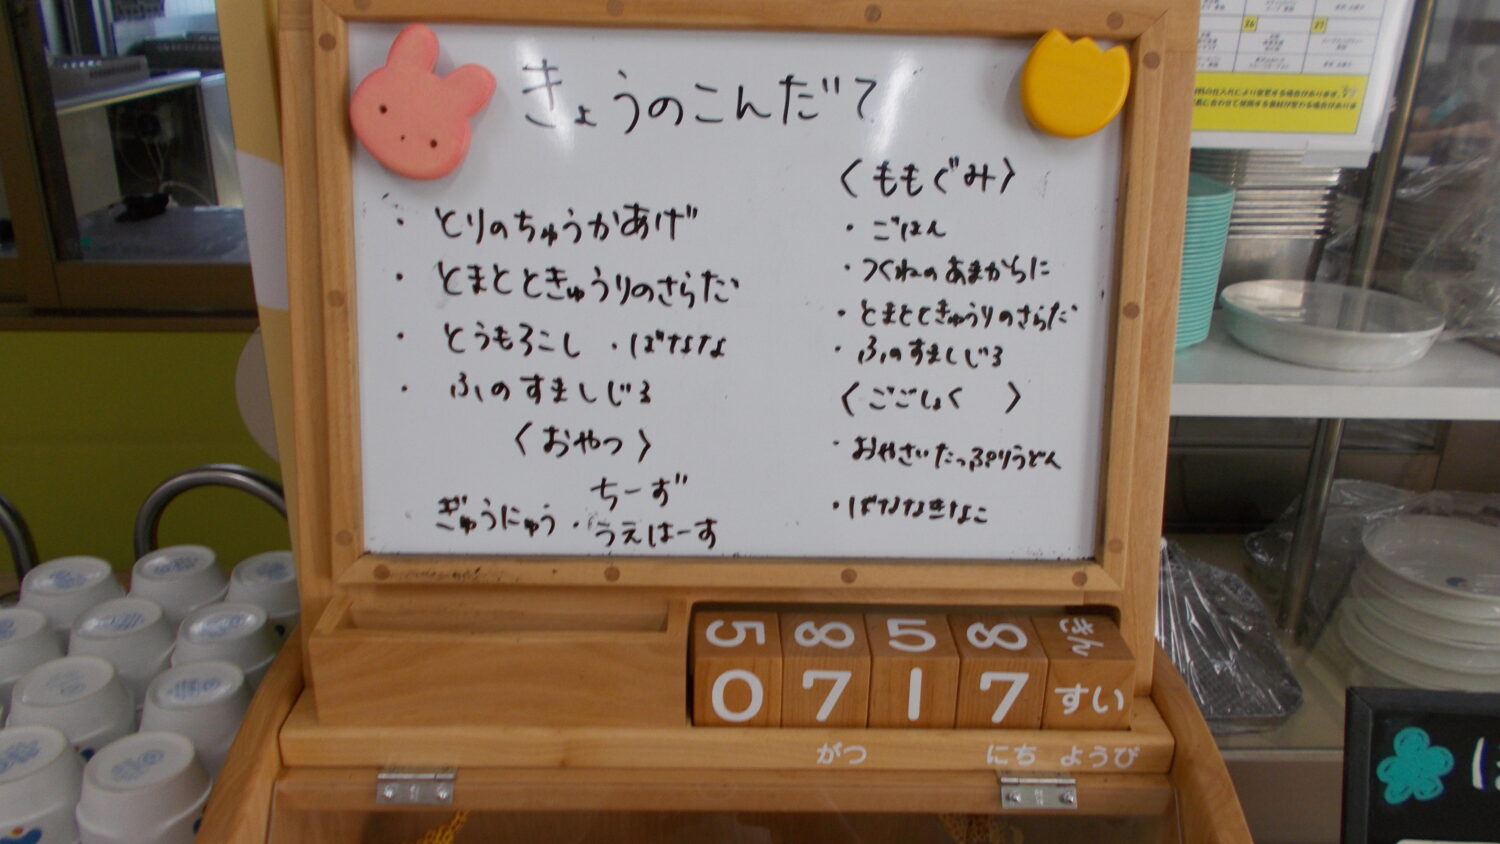 きょうのこんだて
・とりのちゅうかあげ
・とまとときゅうりのさらだ
・とうもろこし ・ばなな
・ふのすましじる
〈おやつ〉
ぎゅうにゅう・ちーず
うえはーす
〈ももぐみ〉
・ごはん
・つくねのあまからに
・とまとときゅうりのさらだ
・ふのすましじる
〈ごごしょく 〉
・おやさいたっぷりうどん
・ばななきなこ
5 8 5 8 きん
0 7 1 7 すい
がつ にち ようび
26 27